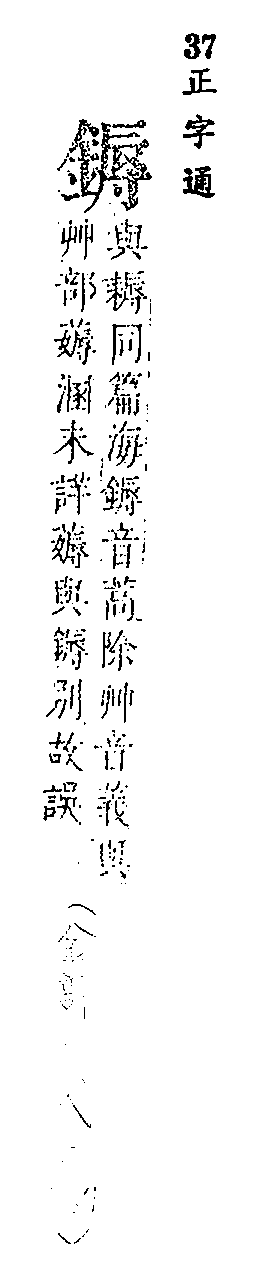 37正字通
鎒
與耨同篇海鎒音蒿除艸音義與
艸部薅溷未詳薅與鎒別故誤
(金部